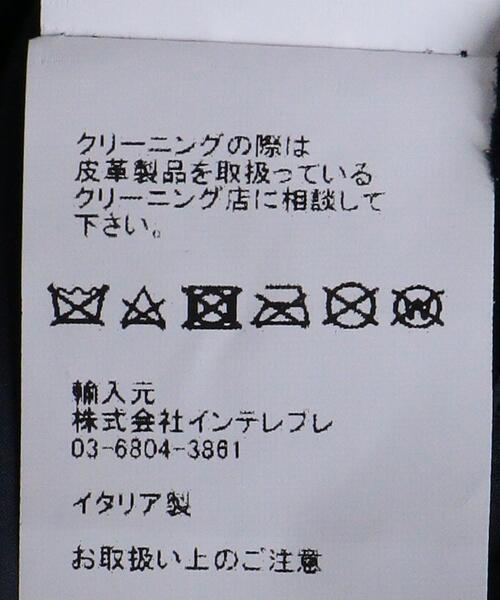 クリーニングの際は
皮革製品を取扱っている
クリーニング店に相談して
下さい。
W
輸入元
株式会社インテレプレ
03-6804-3861
イタリア製
お取扱い上のご注意